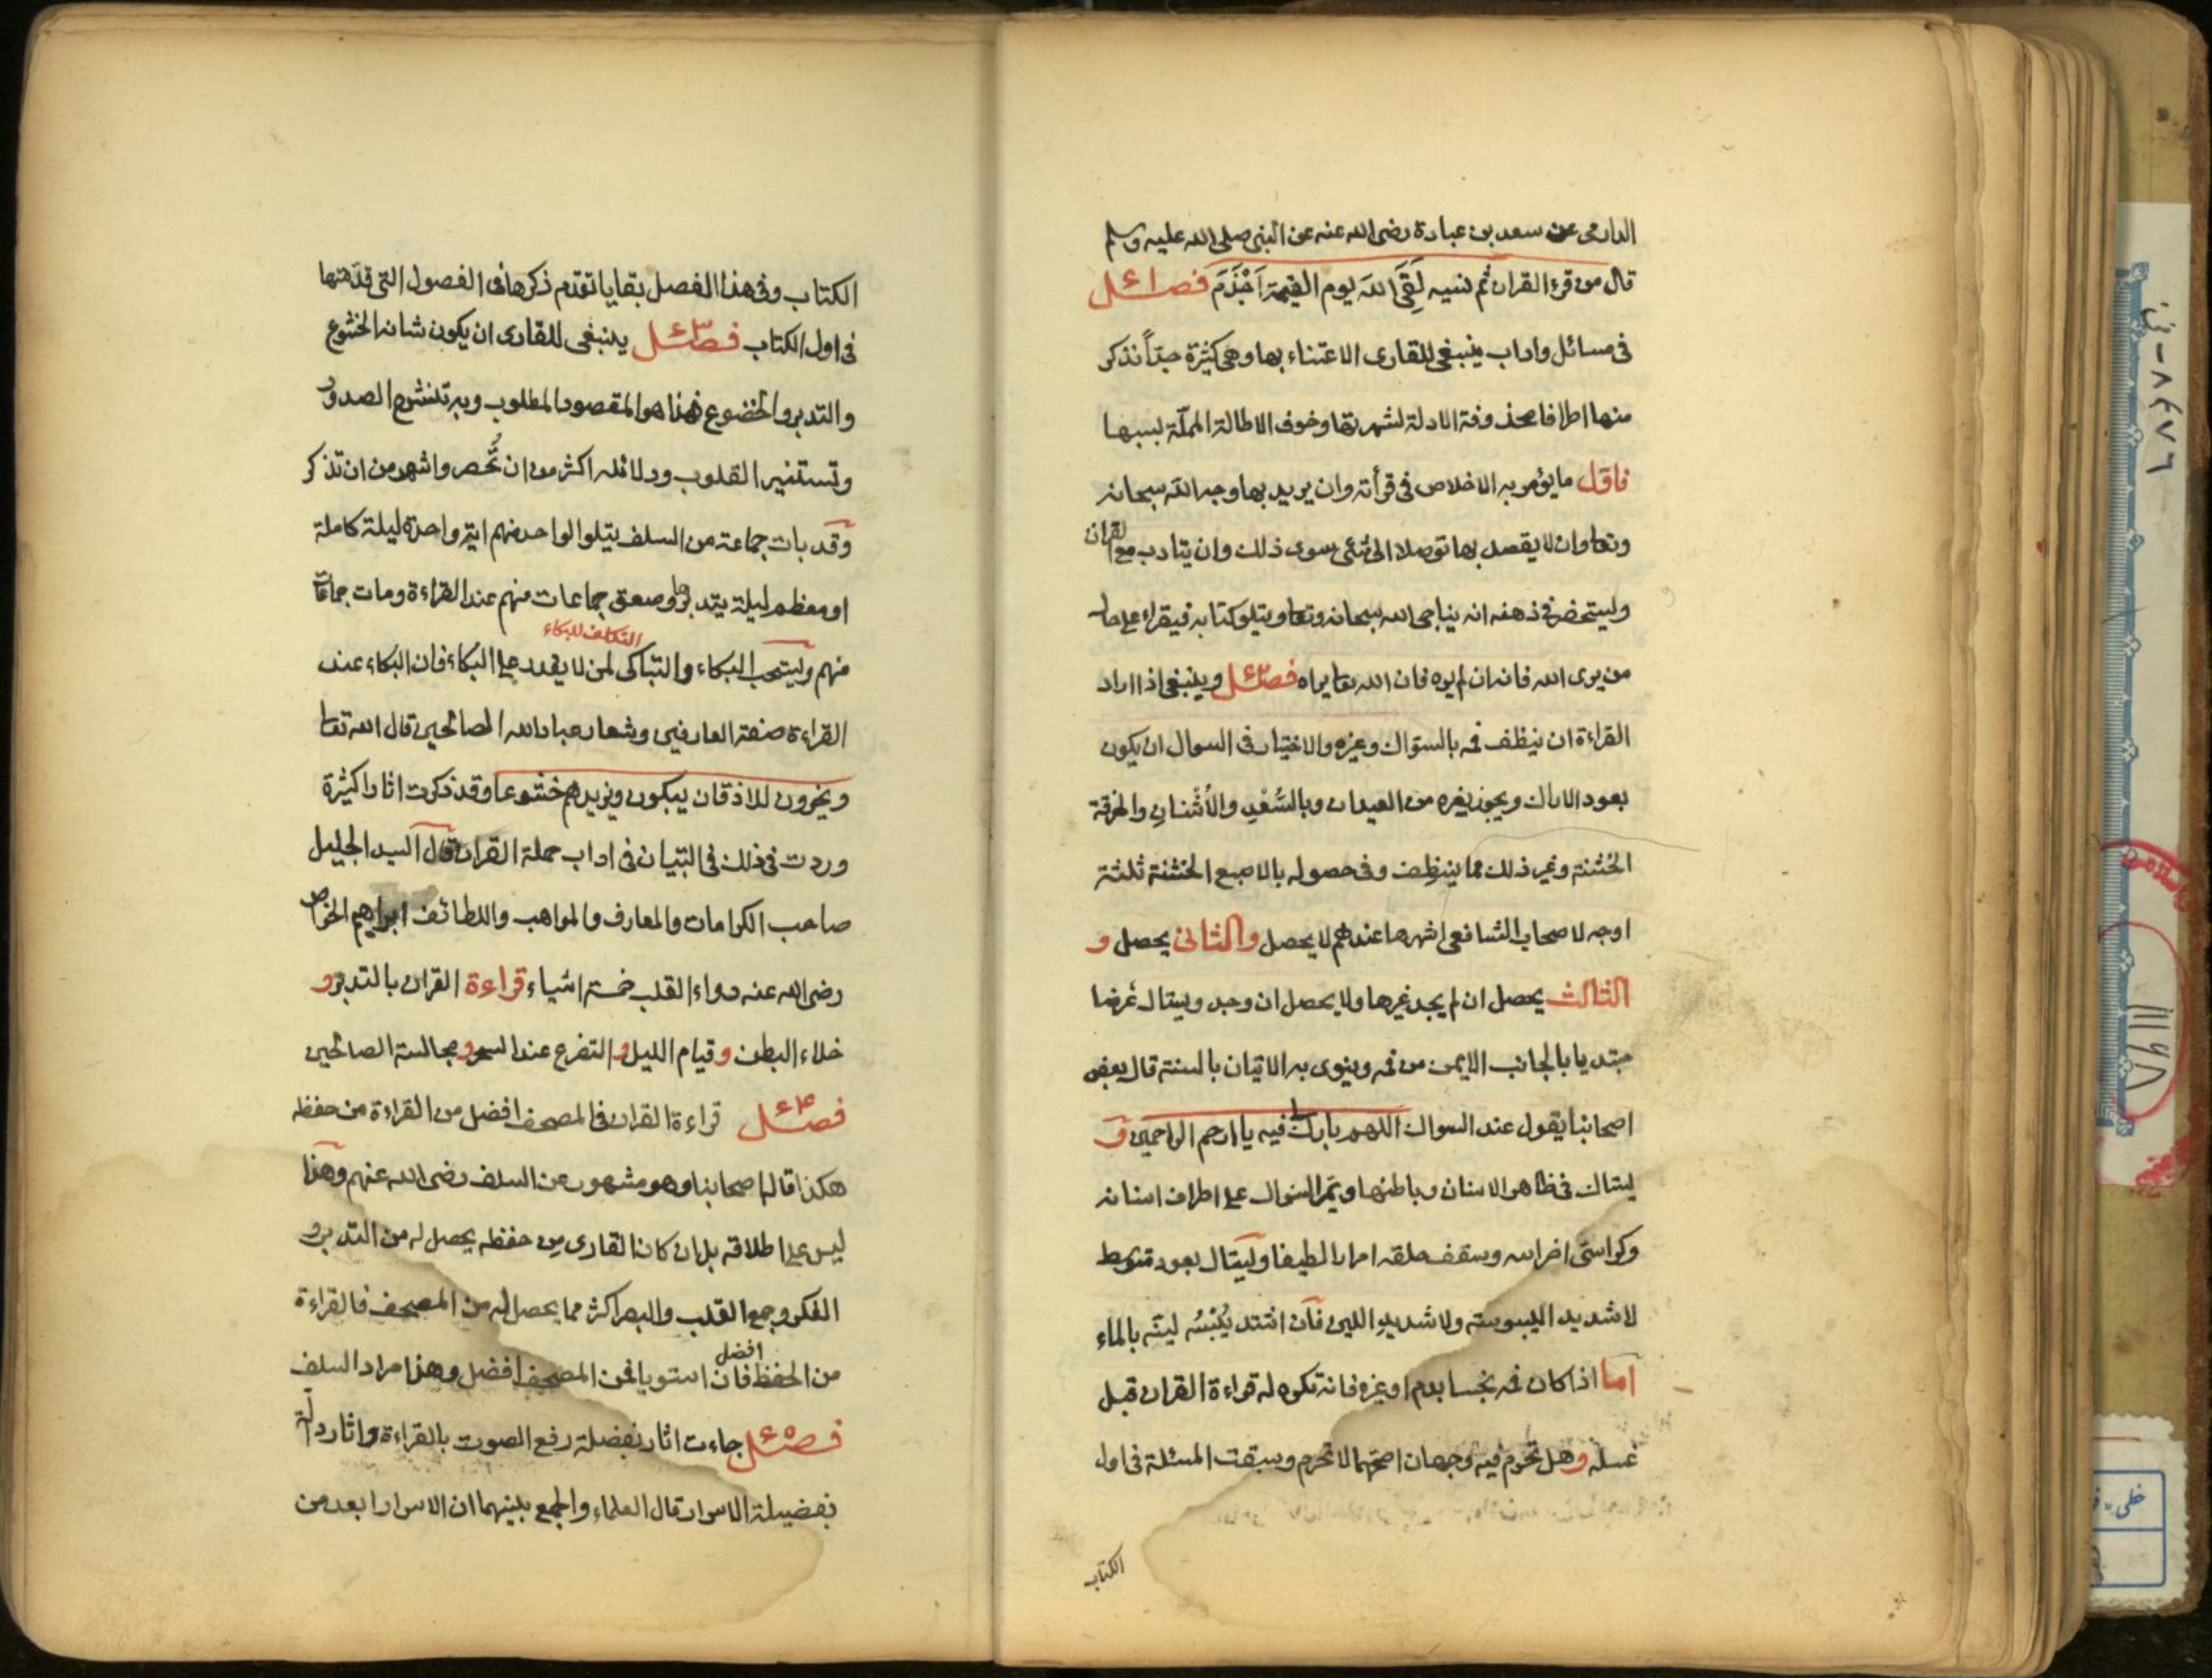 الدارمى عن سعد بن عبادة رضى الله عنه عن النبى صلى الله عليه وسلم
قال من قرء القران ثم نسيه لَقِىَ اللهَ يوم القيمة اَجْذَمَ فصل
فى مسائل واداب ينبغى للقارى الاعتناء بها وهى كثيرة جدّاً نذكر
منها اطرافا محذوفة الادلة لشهرتها وخوف الاطالة المملّة بسببها
فاوّل ما يؤمر به الاخلاص فى قرأته وان يريد بها وجه الله سبحانه
وتعا وان لا يقصد بها توصلا الى شئ سوى ذلك وان يتادب مع القران
وليستحضر فى ذهنه انه يناجى الله سبحانه وتعا ويتلو كتابه فيقراء على حال
من يرى الله فانه ان لم يره فان الله تعا يراه فصل وينبغى اذا اراد
القراءة ان ينظف فمه بالسواك وغيره والاختيار فى السواك ان يكون
بعود الاراك ويجوز بغيره من العيدان وبالسُّعْدِ والاُشْنانِ والخرقة
الخشنة وغير ذلك مما ينظِف وفى حصوله بالاصبع الخشنة ثلثة
اوجه لاصحاب الشافعى اشهرها عندهم لا يحصل والثانى يحصل و
الثالث يحصل ان لم يجد غيرها ولا يحصل ان وجد ويستاك عرضا
مبتديا بالجانب الايمن من فمه وينوى به الاتيان بالسنة قال بعض
اصحابنا يقول عند السواك اللهم بارك لى فيه يا ارحم الراحمين و
يستاك فى ظاهر الاسنان وباطنها ويمر السواك على اطراف اسنانه
وكراسى اضراسه وسقف حلقه امرارا لطيفا ويستاك بعود متوسط
لا شديد اليبوسة ولا شديد اللين فان اشتد يُبْسُه ليّنه بالماء
اما اذا كان فمه نجسا بدم او غيره فانه تكره له قراءة القران قبل
غسله وهل تحرم فيه وجهان اصحّهما لا تحرم وسبقت المسئلة فى اول
الكتاب
الكتاب وفى هذا الفصل بقايا تقدم ذكرها فى الفصول التى قدّمتها
فى اول الكتاب فصل ينبغى للقارى ان يكون شانه الخشوع
والتدبر والخضوع فهذا هو المقصود المطلوب وبه تنشرح الصدور
وتستنير القلوب ودلائله اكثر من ان تُحصر واشهر من ان تذكر
وقد بات جماعة من السلف يتلوا الواحد منهم اية واحدة ليلة كاملة
او معظم ليلة يتدبرها وصعق جماعات منهم عند القراءة ومات جماعات
التكلف للبكاء
منهم ويستحب البكاء والتباكى لمن لا يقدر على البكاء فان البكاء عند
القراءة صفة العارفين وشعار عباد الله الصالحين قال الله تعا
ويخرون للاذقان يبكون ويزيدهم خشوعا وقد ذكرت اثارا كثيرة
وردت فى ذلك فى التبيان فى اداب حملة القران قال السيد الجليل
صاحب الكرامات والمعارف والمواهب واللطائف ابراهيم الخواص
رضى الله عنه دواء القلب خمسة اشياء قراءة القران بالتدبر و
خلاء البطن وقيام الليل والتضرع عند السحر ومجالسة الصالحين
فصل قراءة القران فى المصحف افضل من القراءة من حفظه
هكذا قاله اصحابنا وهو مشهور عن السلف رضى الله عنهم وهذا
ليس على اطلاقه بل ان كان القارى من حفظه يحصل له من التدبر و
الفكر وجمع القلب والبصر اكثر مما يحصل له من المصحف فالقراءة
من الحفظ افضل فان استويا فمن المصحف افضل وهذا مراد السلف
فصل جاءت اثار بفضيلة رفع الصوت بالقراءة واثار دالّة
بفضيلة الاسرار قال العلماء والجمع بينهما ان الاسرار ابعد من